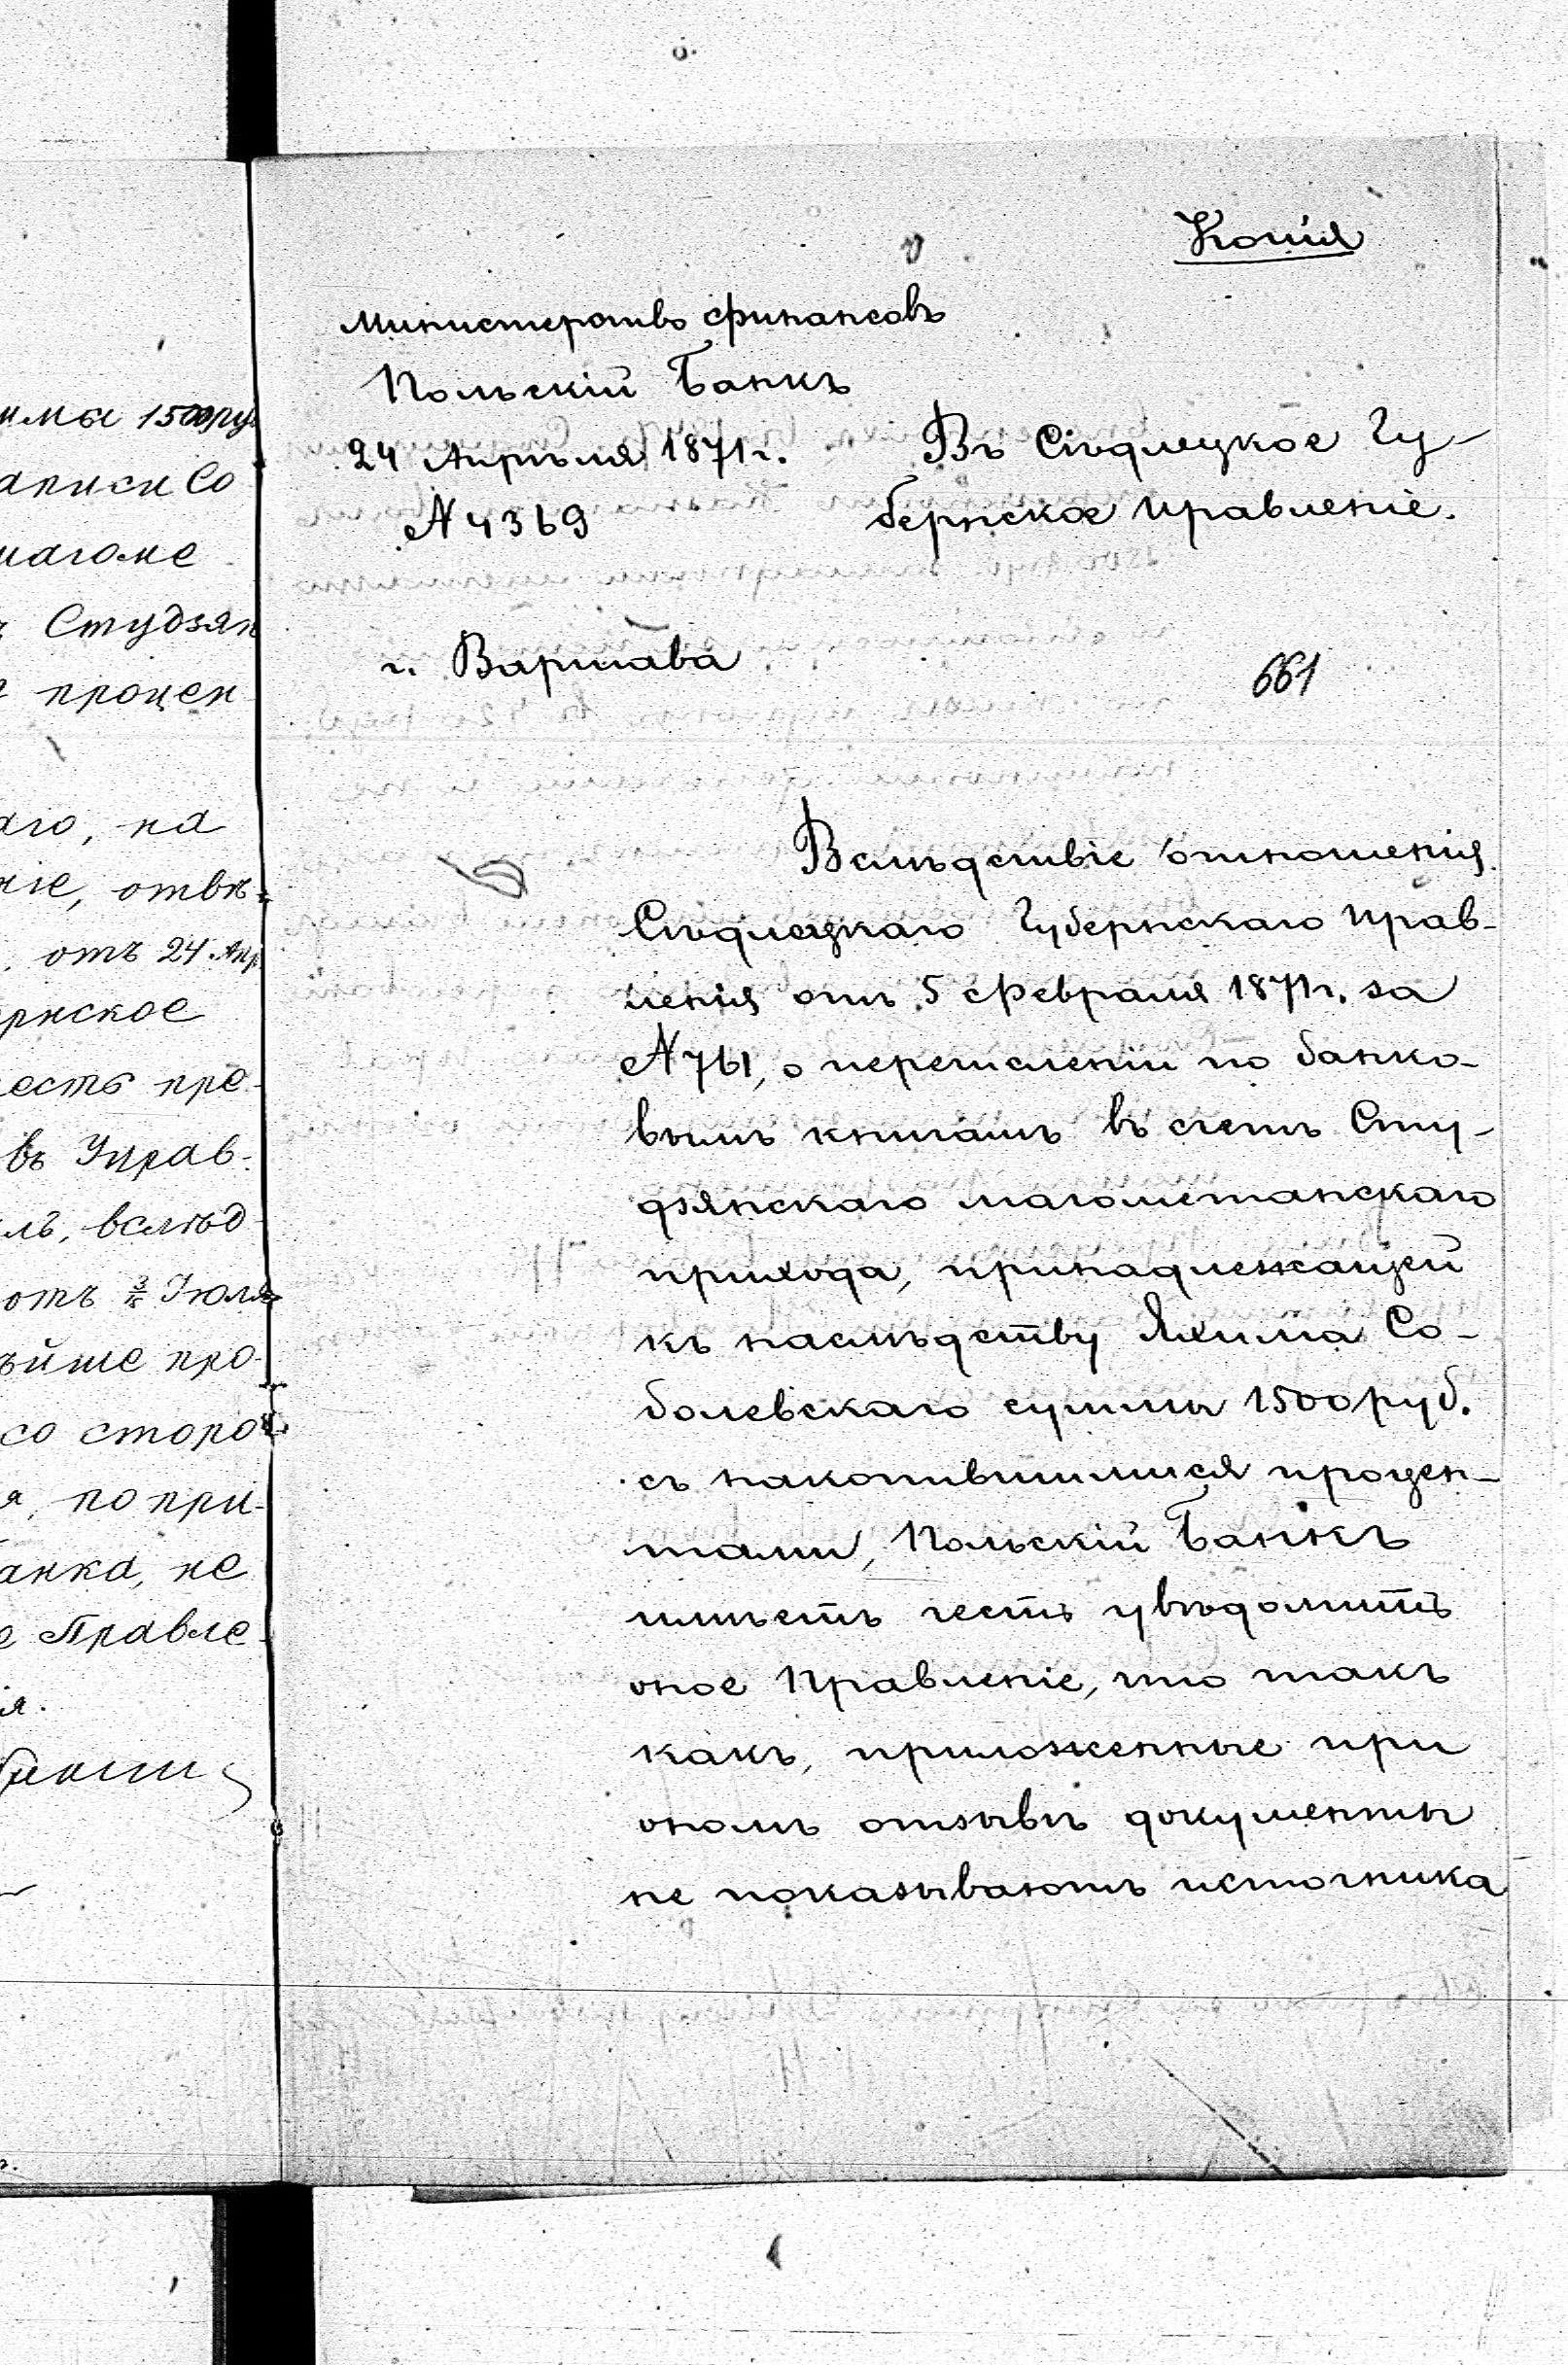 Копія
Министерство финансовъ
Польскій Банкъ
24 Апрѣля 1871 г.
№ 4369
г. Варшава
Въ Сѣдлецкое Гу-
бернское Правленіе.
661
Вслѣдствіе отношенія
Сѣдлецкаго Губернскаго Прав-
ленія отъ 5 Февраля 1871 г. за
№ 761, о перечисленіи по банко-
вымъ книгамъ въ счетъ Сту-
дзянскаго магометанскаго
прихода, принадлежащей
къ наслѣдству Яхима Со-
болевскаго суммы 1500 руб.
съ накопившимися процен-
тами, Польскій Банкъ
имѣетъ честь увѣдомить
оное Правленіе, что такъ
какъ, приложенные при
ономъ отзывѣ документы
не показываютъ источника
ммы 1500 ру
аписи Со
магоме
Студзян
процен
аго, на
ніе, отвѣ
отъ 24 Апр
рнское
честь пре-
въ Управ-
ль, вслѣд
отъ Іюля
ѣйше про-
со сторо
я, по при-
анка, не
е Правле-
ія.